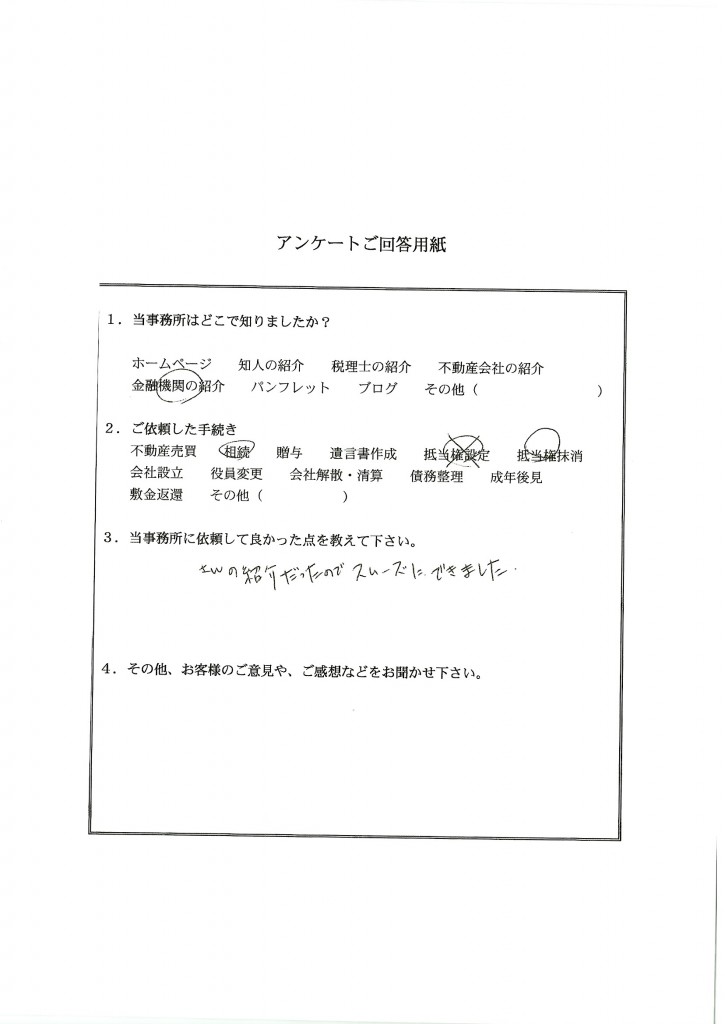 アンケートご回答用紙
1．当事務所はどこで知りましたか？
ホームページ　知人の紹介　税理士の紹介　不動産会社の紹介
金融機関の紹介　パンフレット　ブログ　その他（　　　　　　　　）
2．ご依頼した手続き
不動産売買　相続　贈与　遺言書作成　抵当権設定　抵当権抹消
会社設立　役員変更　会社解散・清算　債務整理　成年後見
敷金返還　その他（　　　　　　）
3．当事務所に依頼して良かった点を教えて下さい。
さんの紹介だったので スムーズに できました.
4．その他、お客様のご意見や、ご感想などをお聞かせ下さい。